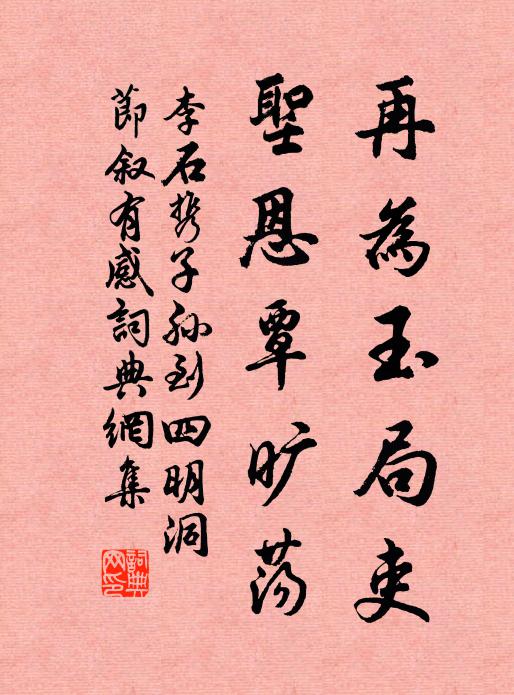 再為玉局吏
聖恩覃旷荡
李石携子孫到四明洞
節叙有感詞典網集
詞典网印